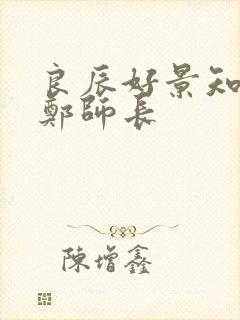 良辰好景知
鄭師長
陳增鑫